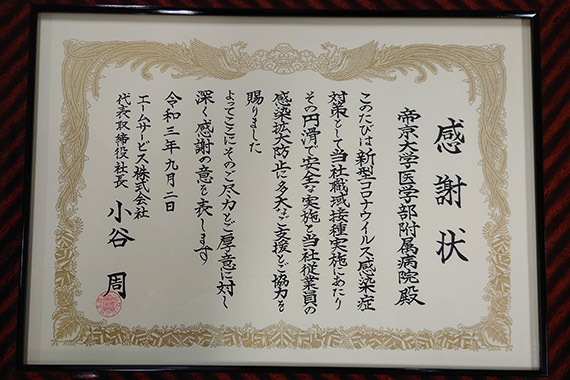 感謝状
帝京大学医学部附属病院殿
このたびは新型コロナウイルス感染症
対策として当社職域接種実施にあたり
その円滑で安全な実施と当社従業員の
感染拡大防止に多大なご支援とご協力を
賜りました
よってここにそのご尽力とご厚意に対し
深く感謝の意を表します
令和三年九月二日
エームサービス株式会社
代表取締役社長 小谷 周